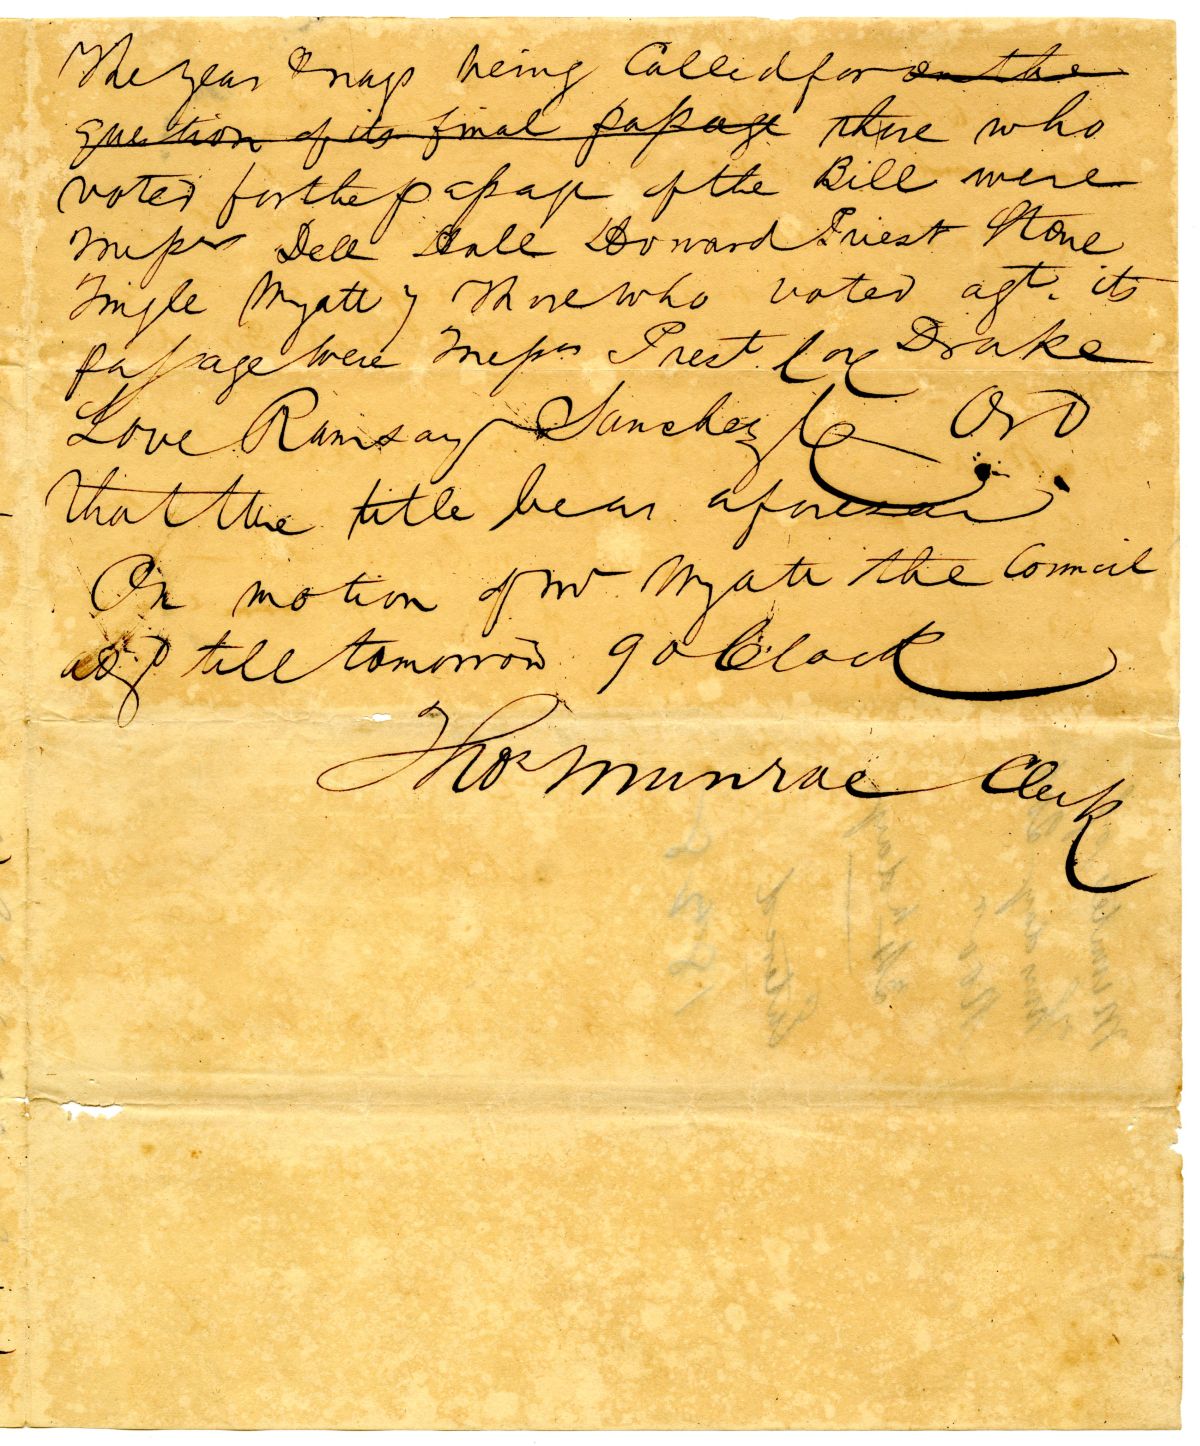 The yeas & nays being Called for on the
question of its final passage those who
voted for the passage of the Bill were
Messrs Dell Hall Howard Priest Stone
Tingle Wyatt 7 Those who voted agt. its
passage were Messrs Prest. Drake
Love Ramsay Sanchez 6 Ord
that the title be as aforesaid
On motion of Mr Wyatt the Council
adjd till tomorrow 9 o Clock
Thos Munroe Clerk